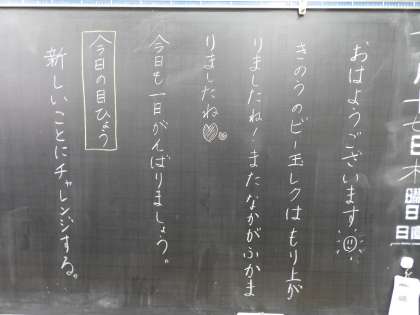 おはようございます。
きのうのビー玉レクはもり上が
りましたね！またなかがふかま
りましたね♡♡
今日も一日がんばりましょう。
今日の目ひょう
新しいことにチャレンジする。
曜日
日直